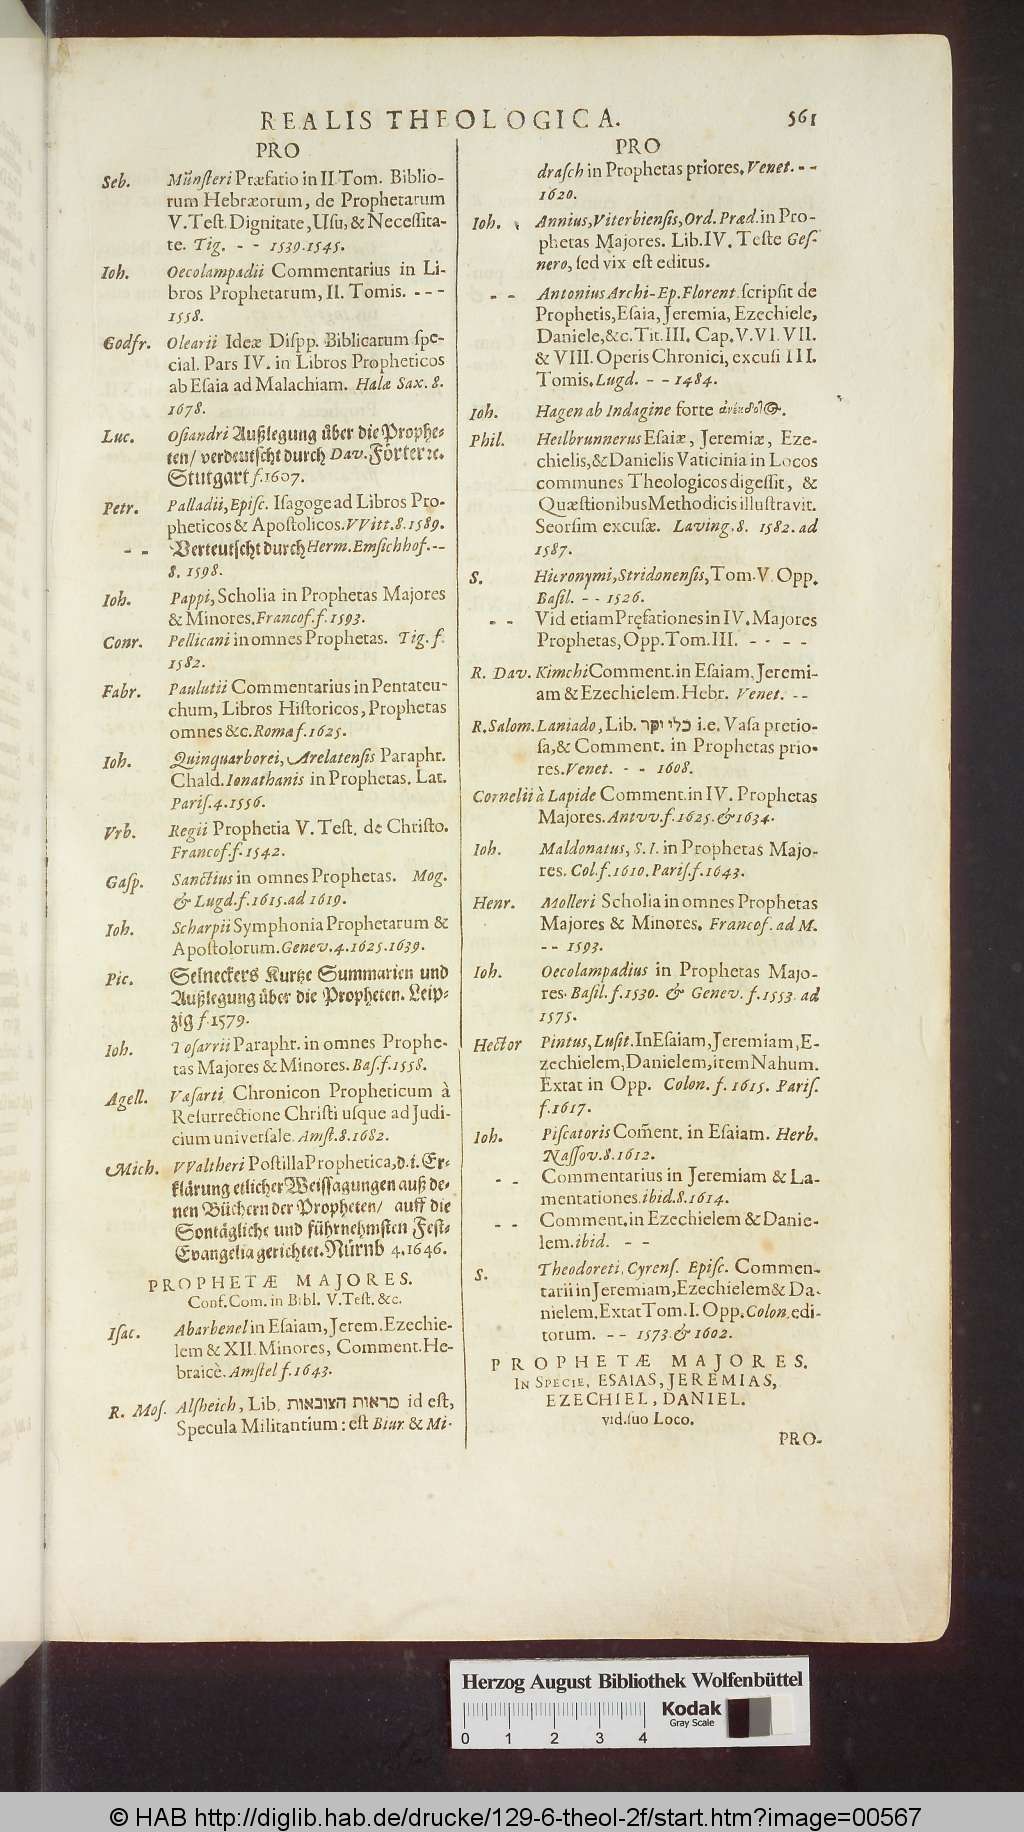 REALIS THEOLOGICA. 561
PRO
Seb. Münſteri Præfatio in II Tom. Biblio-
rum Hebræorum, de Prophetarum
V. Teſt. Dignitate, Uſu, & Neceſſita-
te. Tig. - - 1539.1545.
Ioh. Oecolampadii Commentarius in Li-
bros Prophetarum, II. Tomis. - - -
1558.
Godfr. Olearii Ideæ Diſpp. Biblicarum ſpe-
cial. Pars IV. in Libros Propheticos
ab Eſaia ad Malachiam. Halæ Sax. 8.
1678.
Luc. Oſiandri Außlegung über die Prophe-
ten/ verdeutſcht durch Dav. Förter ꝛc.
Stutgart f.1607.
Petr. Palladii, Epiſc. Iſagoge ad Libros Pro-
pheticos & Apoſtolicos. VVitt. 8. 1589.
- - Verteutſcht durch Herm. Emſichhof. --
8. 1598.
Ioh. Pappi, Scholia in Prophetas Majores
& Minores. Francof. f. 1593.
Conr. Pellicani in omnes Prophetas. Tig. f.
1582.
Fabr. Paulutii Commentarius in Pentateu-
chum, Libros Hiſtoricos, Prophetas
omnes &c. Roma f. 1625.
Ioh. Quinquarborei, Arelatenſis Parapht.
Chald. Ionathanis in Prophetas. Lat.
Pariſ. 4. 1556.
Vrb. Regii Prophetia V. Teſt. de Chriſto.
Francof. f. 1542.
Gaſp. Sanctius in omnes Prophetas. Mog.
& Lugd. f. 1615. ad 1619.
Ioh. Scharpii Symphonia Prophetarum &
Apoſtolorum. Genev. 4. 1625. 1639.
Pic. Selneckers Kurtze Summarien und
Außlegung über die Propheten. Leip-
zig f. 1579.
Ioh. Toſarrii Parapht. in omnes Prophe-
tas Majores & Minores. Baſ. f. 1558.
Agell. Vaſarti Chronicon Propheticum à
Reſurrectione Chriſti uſque ad Judi-
cium univerſale. Amſt. 8. 1682.
Mich. VValtheri Poſtilla Prophetica, d. i. Er-
klärung etlicher Weiſſagungen auß de-
nen Büchern der Propheten/ auff die
Sontägliche und führnehmſten Feſt-
Evangelia gerichtet. Nürnb 4. 1646.
PROPHETÆ MAJORES.
Conf. Com. in Bibl. V. Teſt. &c.
Iſac. Abarbenel in Eſaiam, Jerem. Ezechie-
lem & XII. Minores, Comment. He-
braicè. Amſtel f. 1643.
R. Moſ. Alſheich, Lib. מראות הצובאות id eſt,
Specula Militantium: eſt Biur & Mi-
PRO
draſch in Prophetas priores. Venet. - -
1620.
Ioh. Annius, Viterbienſis, Ord. Præd. in Pro-
phetas Majores. Lib. IV. Teſte Geſ-
nero, ſed vix eſt editus.
- - Antonius Archi-Ep. Florent. ſcripſit de
Prophetis, Eſaia, Jeremia, Ezechiele,
Daniele, &c. Tit. III. Cap. V. VI. VII.
& VIII. Operis Chronici, excuſi III.
Tomis. Lugd. - - 1484.
Ioh. Hagen ab Indagine forte
Phil. Heilbrunnerus Eſaiæ, Jeremiæ, Eze-
chielis, & Danielis Vaticinia in Locos
communes Theologicos digeſſit, &
Quæſtionibus Methodicis illuſtravit.
Seorſim excuſæ. Laving. 8. 1582. ad
1587.
S. Hieronymi, Stridonenſis, Tom. V. Opp.
Baſil. - - 1526.
- - Vid etiam Præfationes in IV. Majores
Prophetas, Opp. Tom. III. - - - -
R. Dav. Kimchi Comment. in Eſaiam, Jeremi-
am & Ezechielem. Hebr. Venet. - -
R. Salom. Laniado, Lib. כלי יקר i.e. Vaſa pretio-
ſa, & Comment. in Prophetas prio-
res. Venet. - - 1608.
Cornelii à Lapide Comment. in IV. Prophetas
Majores. Antvv. f. 1625. & 1634.
Ioh. Maldonatus, S. I. in Prophetas Majo-
res. Col. f. 1610. Pariſ. f. 1643.
Henr. Molleri Scholia in omnes Prophetas
Majores & Minores. Francof. ad M.
- - 1593.
Ioh. Oecolampadius in Prophetas Majo-
res. Baſil. f. 1530. & Genev. f. 1553. ad
1575.
Hector Pintus, Luſit. In Eſaiam, Jeremiam, E-
zechielem, Danielem, item Nahum.
Extat in Opp. Colon. f. 1615. Pariſ.
f. 1617.
Ioh. Piſcatoris Com̃ent. in Eſaiam. Herb.
Naſſov. 8. 1612.
- - Commentarius in Jeremiam & La-
mentationes. ibid. 8. 1614.
- - Comment. in Ezechielem & Danie-
lem. ibid. - -
S. Theodoreti, Cyrenſ. Epiſc. Commen-
tarii in Jeremiam, Ezechielem & Da-
nielem. Extat Tom. I. Opp. Colon. edi-
torum. - - 1573. & 1602.
PROPHETÆ MAJORES.
IN SPECIE, ESAIAS, JEREMIAS,
EZECHIEL, DANIEL.
vid. ſuo Loco.
PRO-
Herzog August Bibliothek Wolfenbüttel
Kodak
Gray Scale
0 1 2 3 4
© HAB http://diglib.hab.de/drucke/129-6-theol-2f/start.htm?image=00567